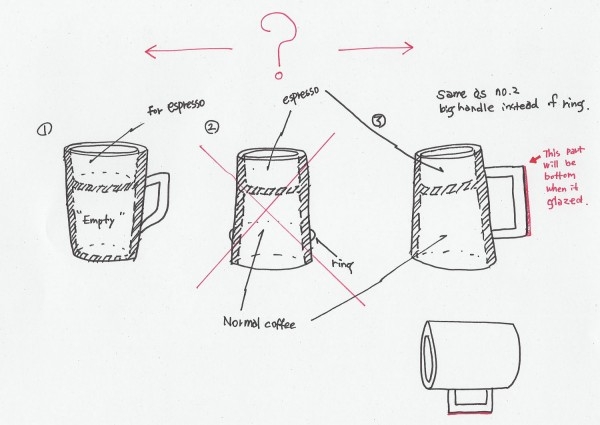 ?
same as no.2
big handle instead of ring.
① for espresso
② espresso
③
This part
will be
bottom
when it
glazed.
"Empty"
ring
Normal coffee